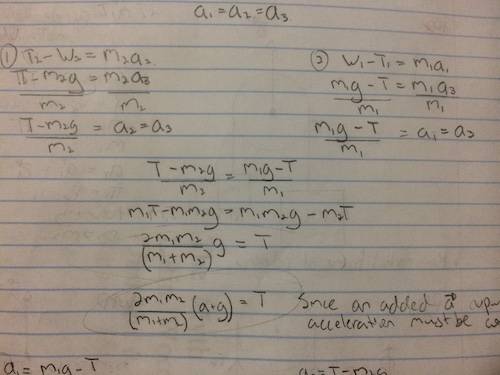 a₁ = a₂ = a₃
① T₂ - W₂ = m₂a₂
T - m₂g / m₂ = m₂a₃ / m₂
T - m₂g / m₂ = a₂ = a₃
② W₁ - T₁ = m₁a₁
m₁g - T / m₁ = m₁a₃ / m₁
m₁g - T / m₁ = a₁ = a₃
T - m₂g / m₂ = m₁g - T / m₁
m₁T - m₁m₂g = m₁m₂g - m₂T
2m₁m₂ / (m₁+m₂) g = T
2m₁m₂ / (m₁+m₂) (a+g) = T
Since an added a⃗
acceleration must be
a₁ = m₁g - T